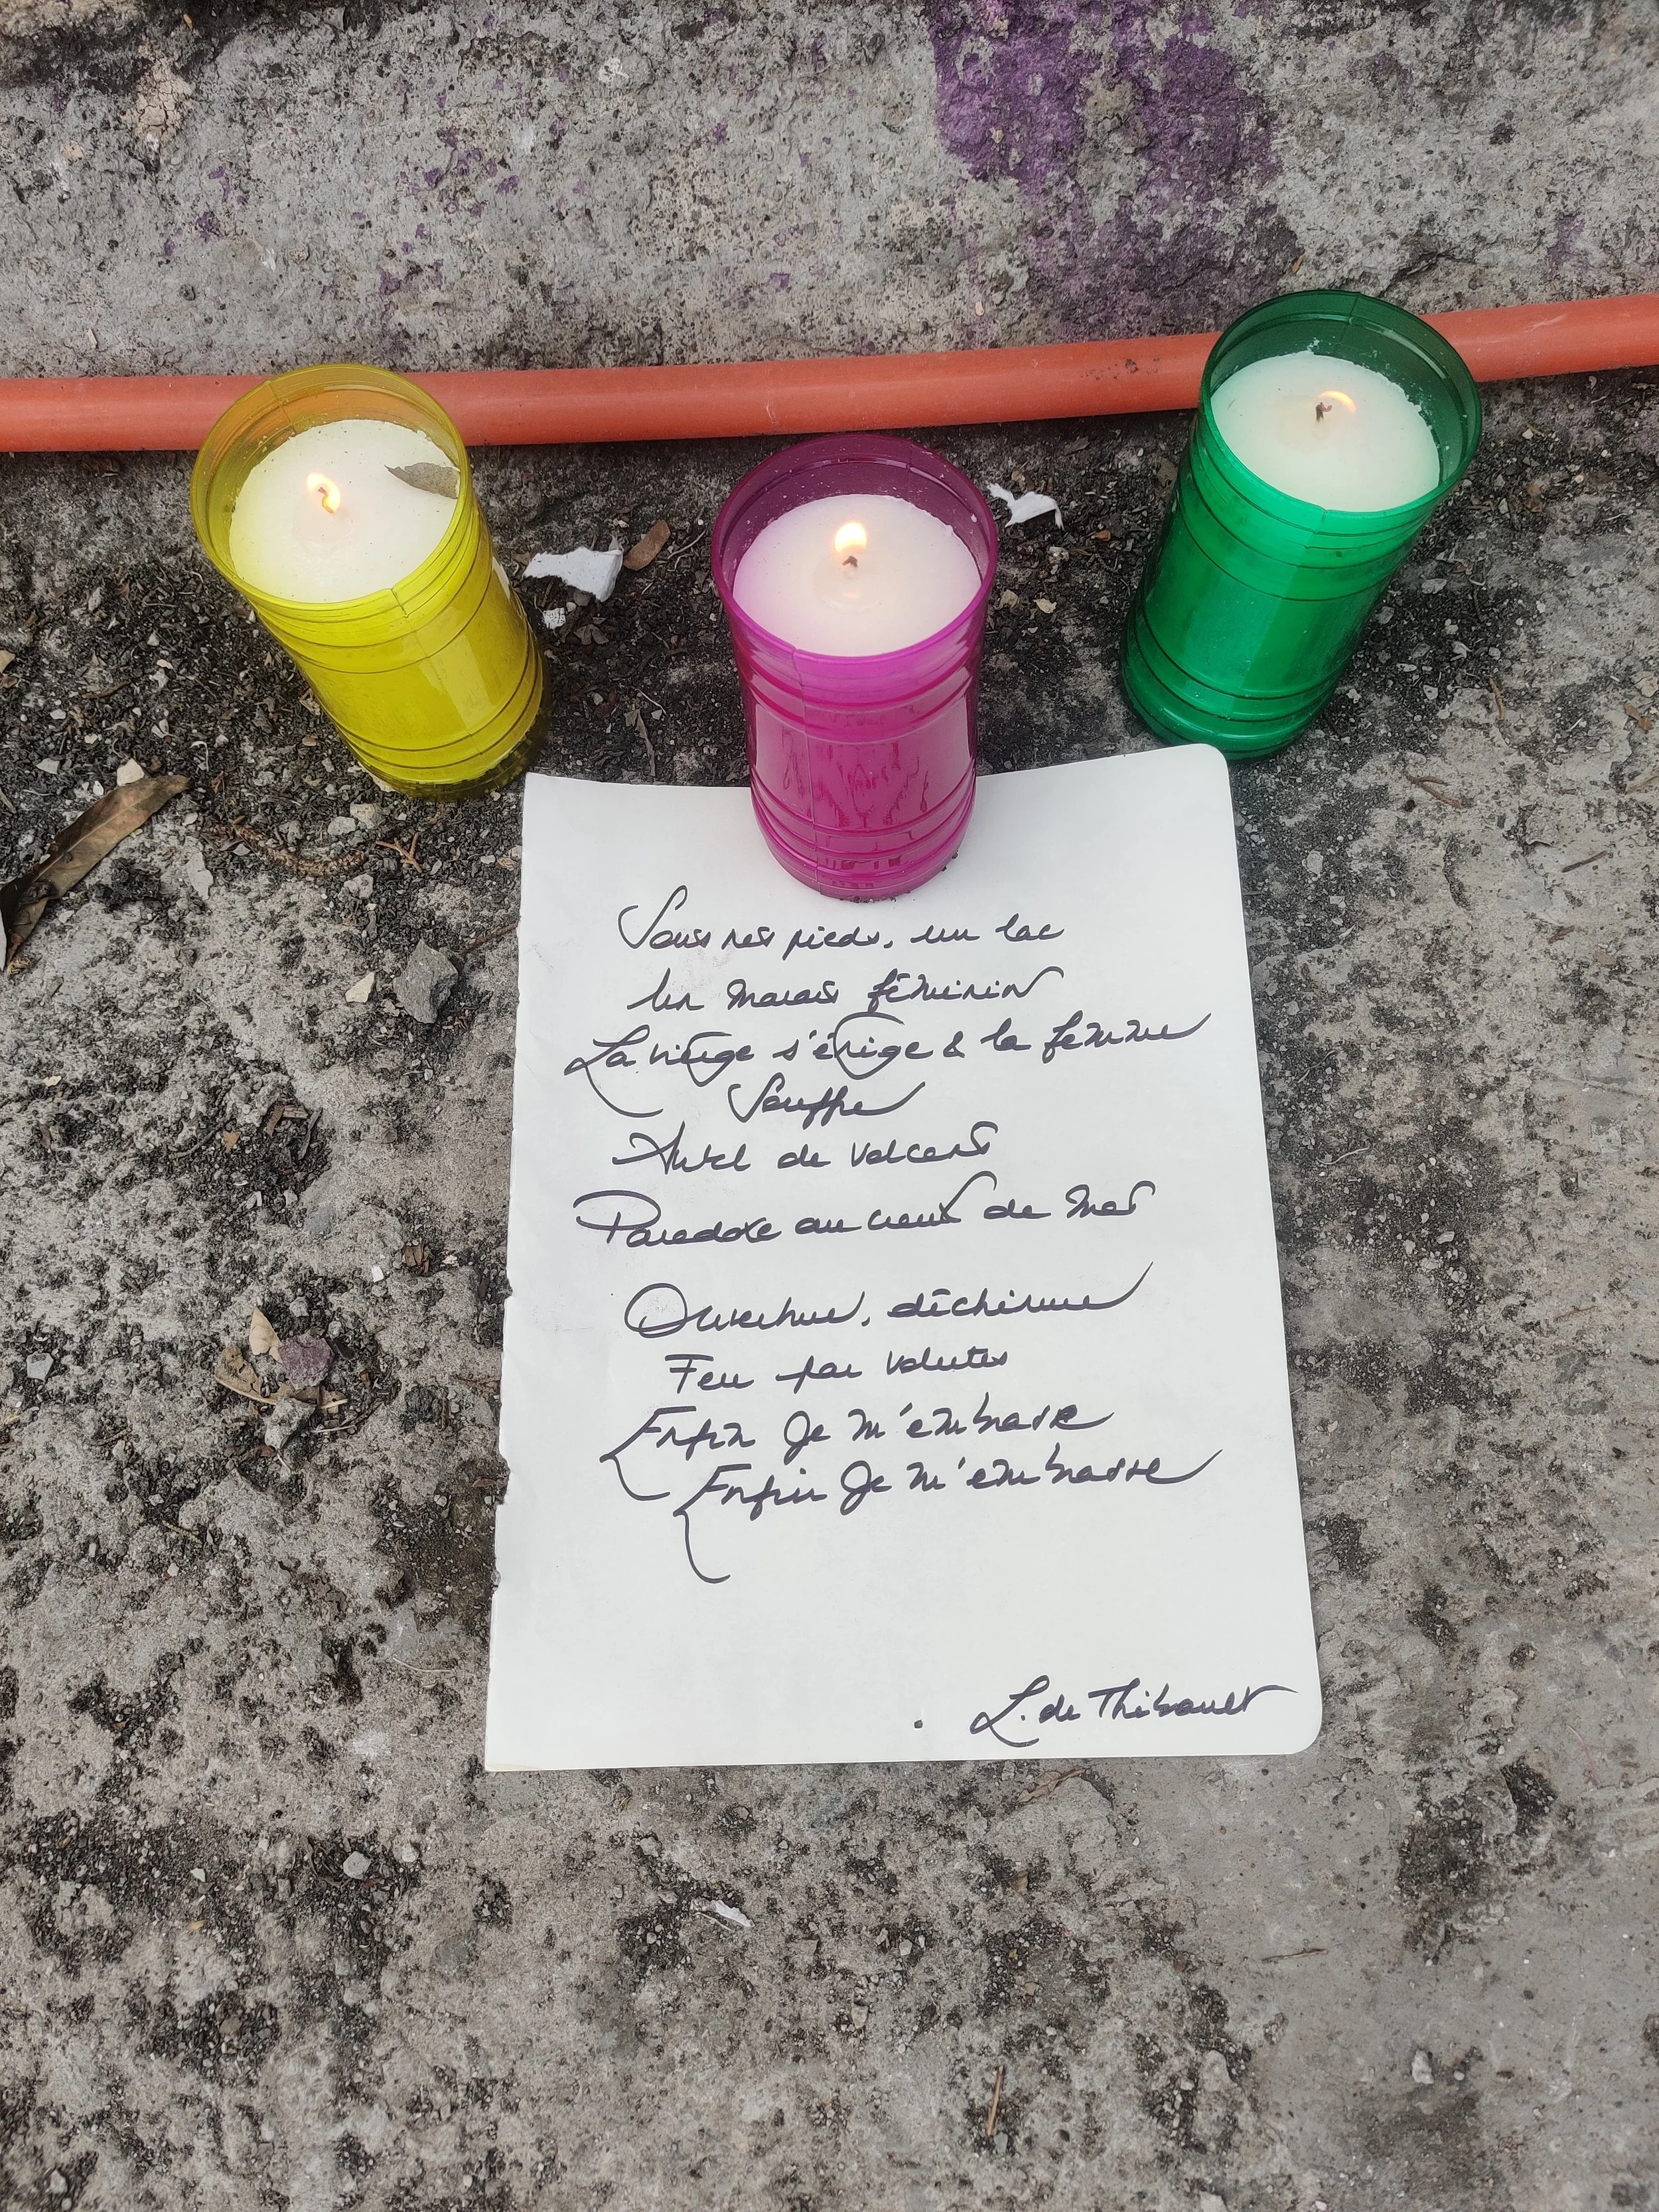 Sous nos pieds, un lac
Un marais féminin
La vierge s'érige & la femme
Souffre
Autel de volcans
Paradoxe au creux de mes
Ouverture, déchirure
Feu par volutes
Enfin Je m'embrasse
Enfin Je m'embrasse
L. de Thibault